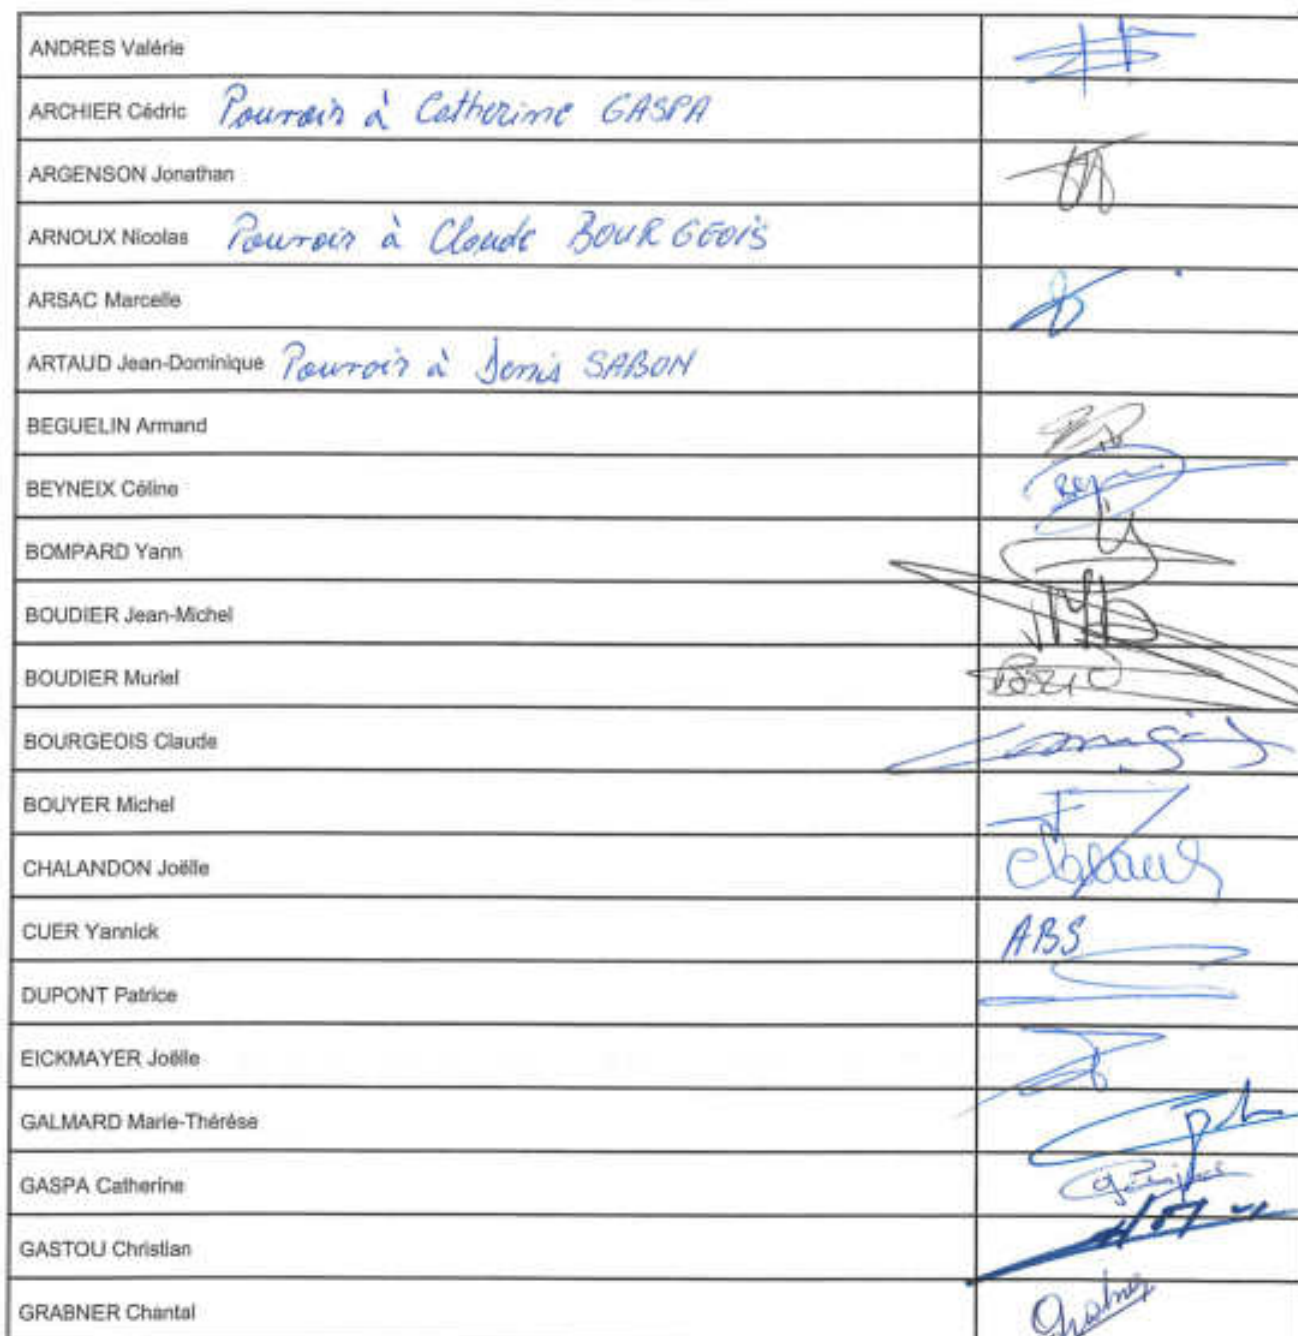 ANDRES Valérie
ARCHIER Cédric Pouvoir à Catherine GASPA
ARGENSON Jonathan
ARNOUX Nicolas Pouvoir à Claude BOURGEOIS
ARSAC Marcelle
ARTAUD Jean-Dominique Pouvoir à Denis SABON
BEGUELIN Armand
BEYNEIX Céline
BOMPARD Yann
BOUDIER Jean-Michel
BOUDIER Muriel
BOURGEOIS Claude
BOUYER Michel
CHALANDON Joëlle
CUER Yannick ABS
DUPONT Patrice
EICKMAYER Joëlle
GALMARD Marie-Thérèse
GASPA Catherine
GASTOU Christian
GRABNER Chantal